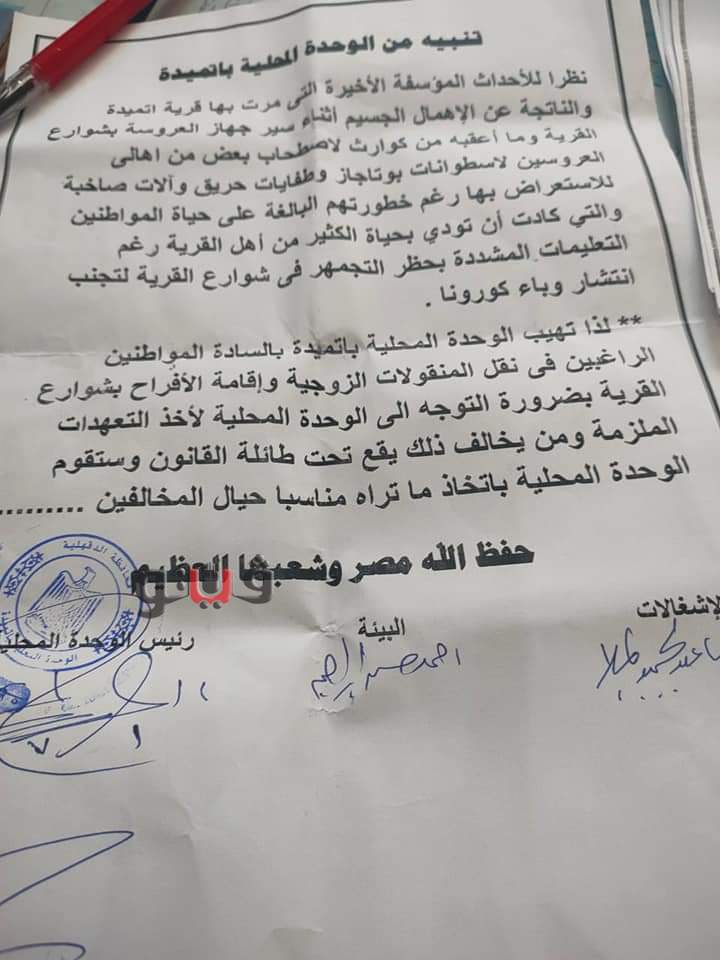 تنبيه من الوحدة المحلية باتميدة
نظرا للأحداث المؤسفة الأخيرة التى مرت بها قرية اتميدة
والناتجة عن الإهمال الجسيم أثناء سير جهاز العروسة بشوارع
القرية وما أعقبه من كوارث لاصطحاب بعض من اهالى
العروسين لاسطوانات بوتاجاز وطفايات حريق وآلات صاخبة
للاستعراض بها رغم خطورتهم البالغة على حياة المواطنين
والتي كادت أن تودي بحياة الكثير من أهل القرية رغم
التعليمات المشددة بحظر التجمهر فى شوارع القرية لتجنب
انتشار وباء كورونا .
** لذا تهيب الوحدة المحلية باتميدة بالسادة المواطنين
الراغبين فى نقل المنقولات الزوجية وإقامة الأفراح بشوارع
القرية بضرورة التوجه الى الوحدة المحلية لأخذ التعهدات
الملزمة ومن يخالف ذلك يقع تحت طائلة القانون وستقوم
الوحدة المحلية باتخاذ ما تراه مناسبا حيال المخالفين .........
حفظ الله مصر وشعبها العظيم
فيتو
الإشغالات
البيئة
رئيس الوحدة المحلية
الدقهلية